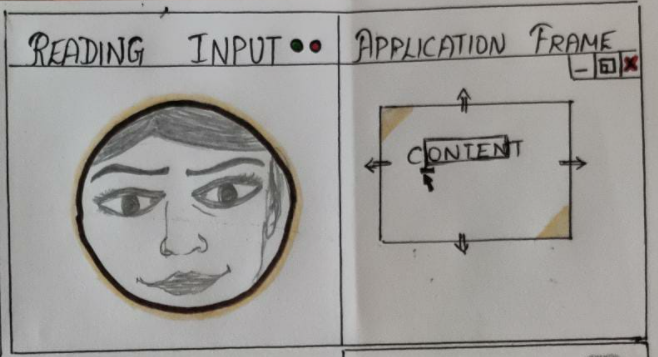 READING INPUT
APPLICATION FRAME
CONTENT